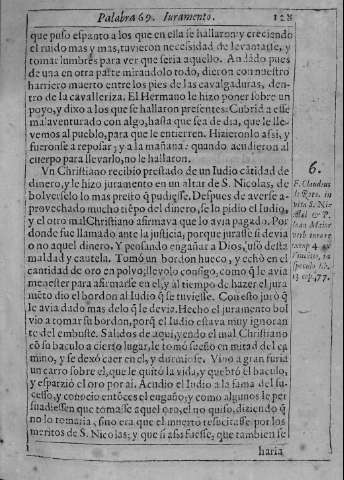 Palabra 69. Iuramento. 128
que puso espanto a los que en ella se hallaron: y creciendo
el ruido mas y mas, tuvieron necessidad de levantarse, y
tomar lumbres para ver que seria aquello. Andãdo pues
de una en otra parte mirandolo todo, dieron con nuestro
harriero muerto entre los pies de las cavalgaduras, den-
tro de la cavalleriza. El Hermano le hizo poner sobre un
poyo, y dixo a los que se hallaron presentes: Cubrid a esse
malaventurado con algo, hasta que sea de dia, que le lle-
vemos al pueblo, para que le entierren. Hizieronlo assi, y
fueronse a reposar; y a la mañana: quando acudieron al
cuerpo para llevarlo, no le hallaron.
Vn Christiano recibio prestado de un Iudio cãtidad de
dinero, y le hizo juramento en un altar de S. Nicolas, de
bolverselo lo mas presto q̃ pudiesse. Despues de averse a-
provechado mucho tiẽpo del dinero, se lo pidio el Iudio,
y el otro mal Christiano afirmava que lo avia pagado. Por
donde fue llamado ante la justicia, porque jurasse si devia
o no aquel dinero. Y pensando engañar a Dios, usò desta
maldad y cautela. Tomò un bordon hueco, y echò en el
cantidad de oro en polvo; llevolo consigo, como q̃ le avia
menester para afirmarse en el, y al tiempo de hazer el jura
mẽto dio el bordon al Iudio q̃ se tuviesse. Con esto jurò q̃
le avia dado mas delo q̃ le devia. Hecho el juramento bol
vio a tomar su bordon, porq̃ el Iudio estava muy ignoran
te del embuste. Salidos de aqui, yendo el mal Christiano
cõ su baculo a cierto lugar, le tomò sueño en mitad del ca
mino, y se dexò caer en el, y durmiose. Vino a gran furia
un carro sobre el, que le quitò la vida, y quebrò el baculo,
y esparziò el oro por ai. Acudio el Iudio a la fama del su-
cesso, y conocio entõces el engaño; y como algunos le per
suadiessen que tomasse aquel oro, el no quiso, diziendo q̃
no lo tomaria, sino era que el muerto resucitasse por los
meritos de S. Nicolas; y que si assi fuesse, que tambien se
haria
6.
F. Claudius
de Rota. in
vita S. Nic
13 cap. 77.